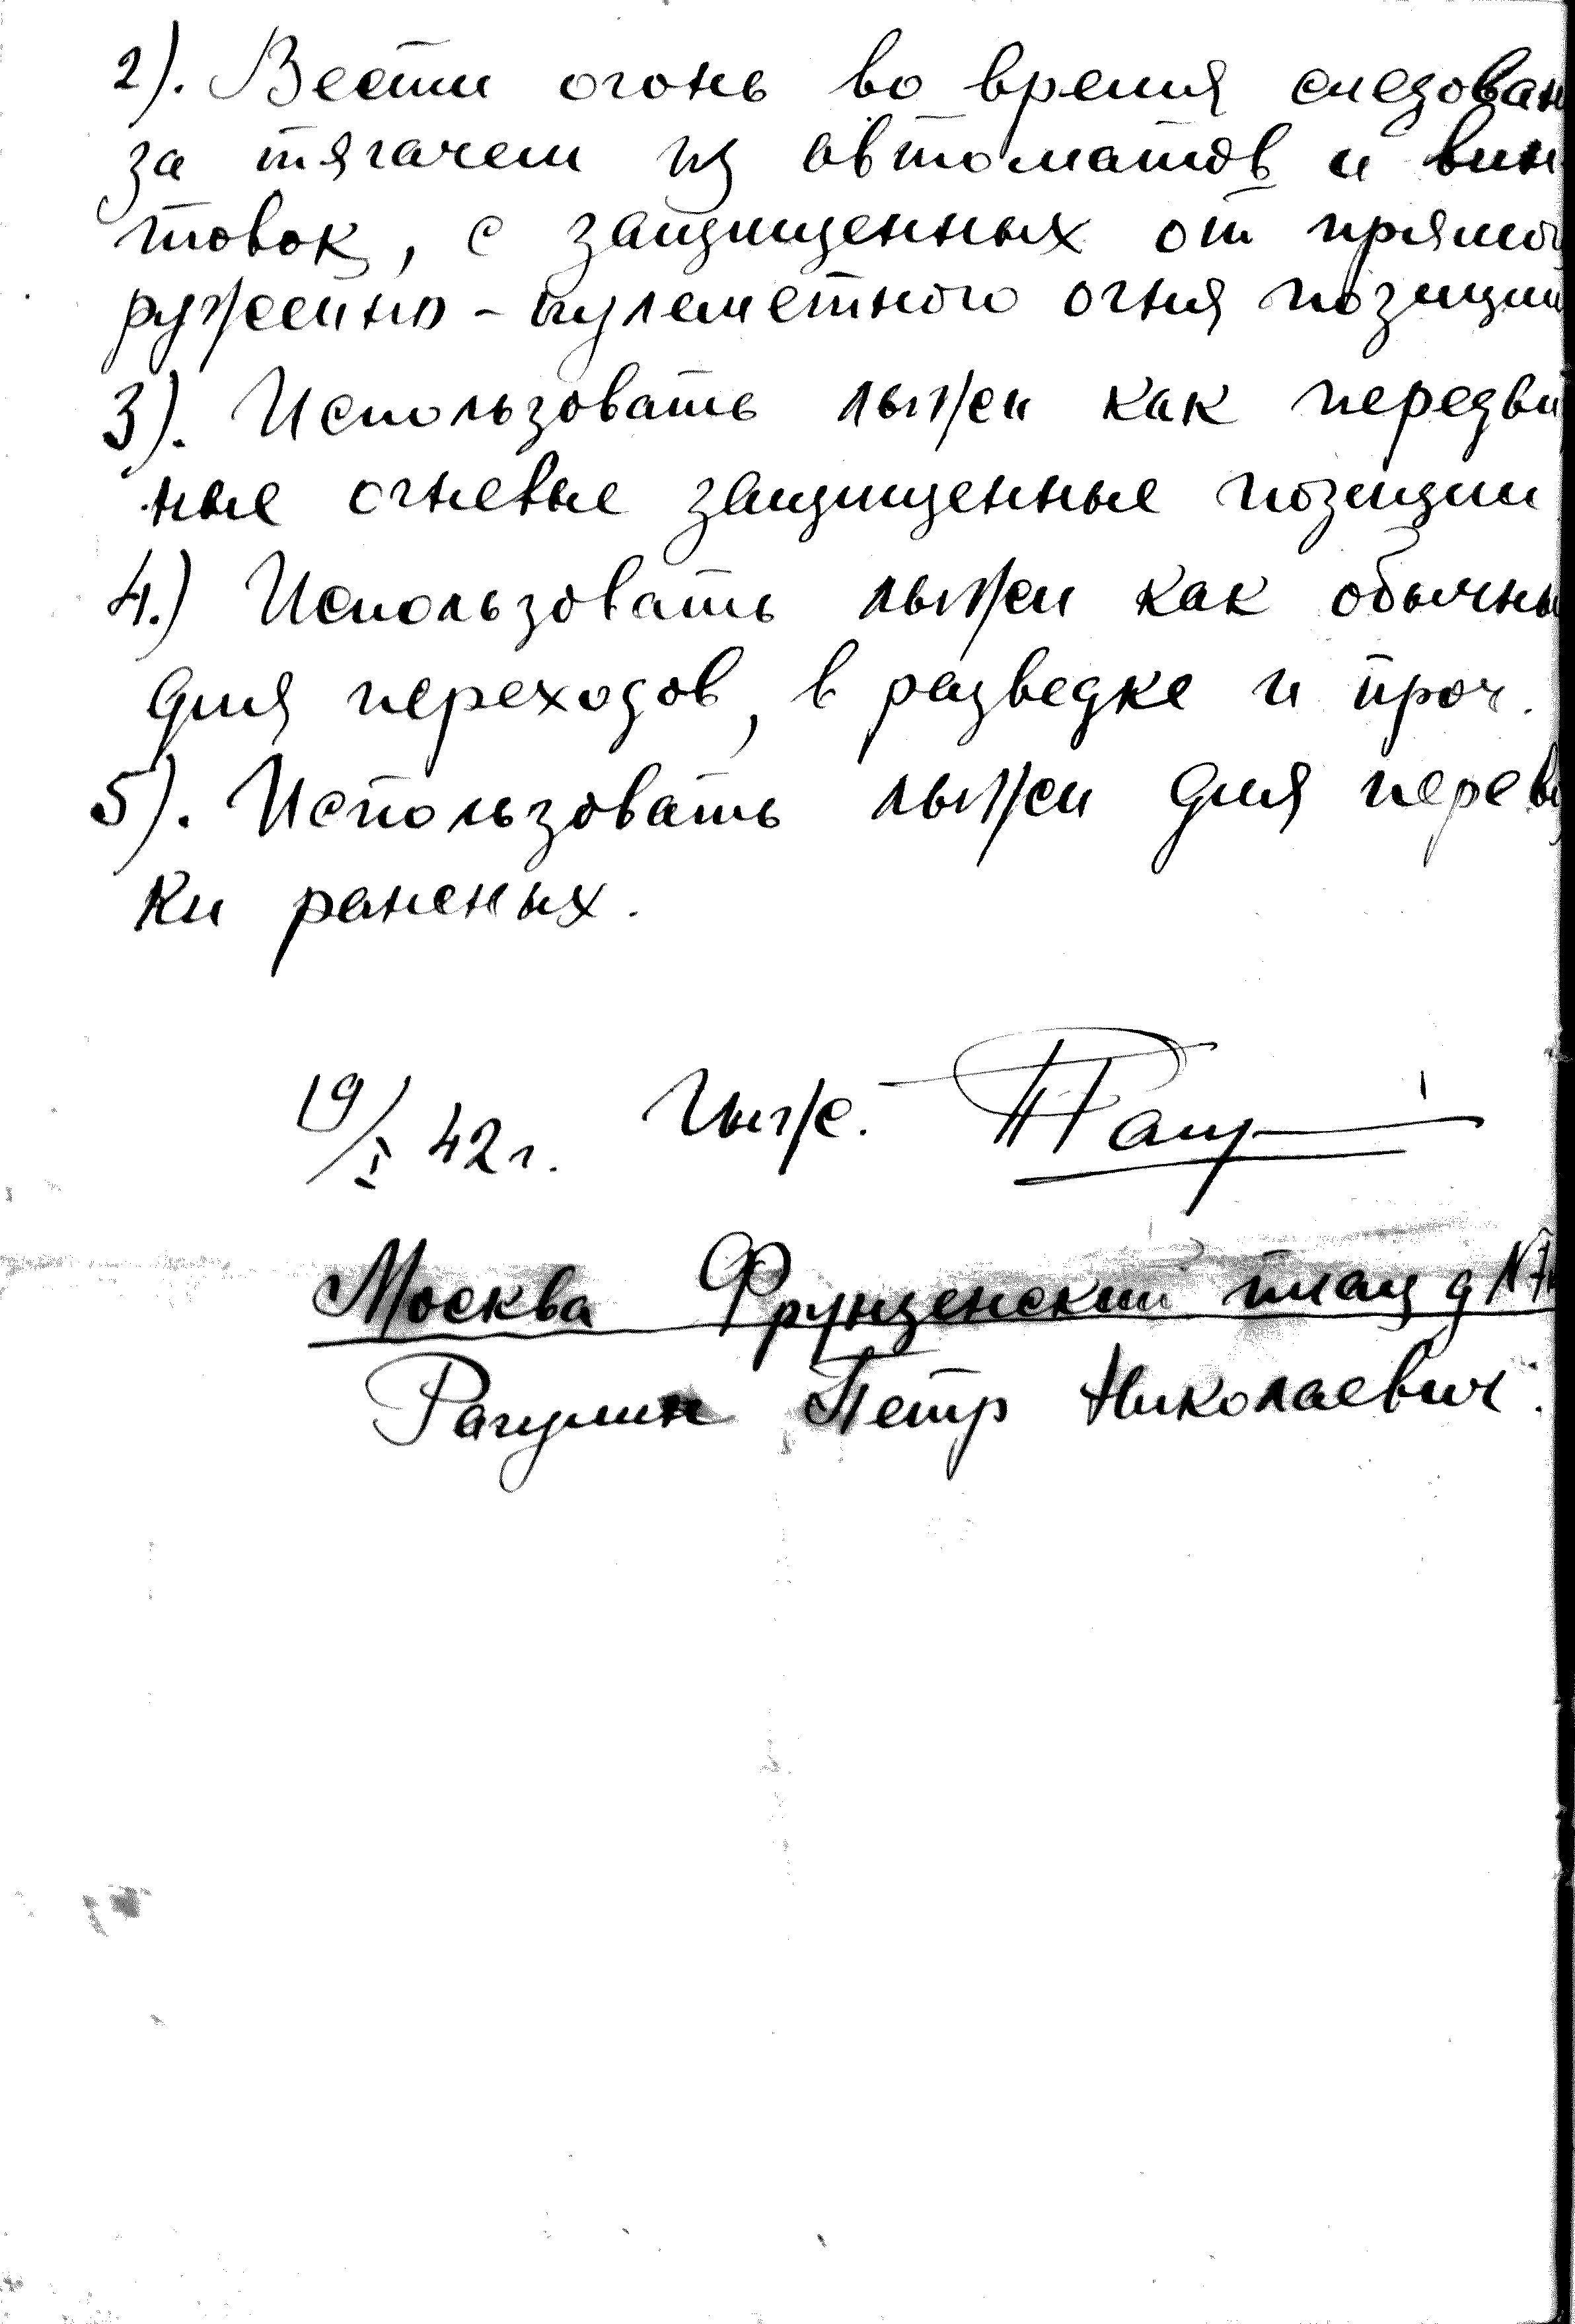 2). Вести огонь во время следован
за тягачем из автоматов и вин
товок, с защищенных от прямог
ружейно-пулеметного огня позиций
3). Использовать лыжи как передви
ные огневые защищенные позиции
4.) Использовать лыжи как обычны
для переходов, в разведке и проч.
5). Использовать лыжи для перево
ки раненых.
19/I 42 г. Инж.
Москва Фрунзенский плац д N 7
Рагулин Петр Николаевич.